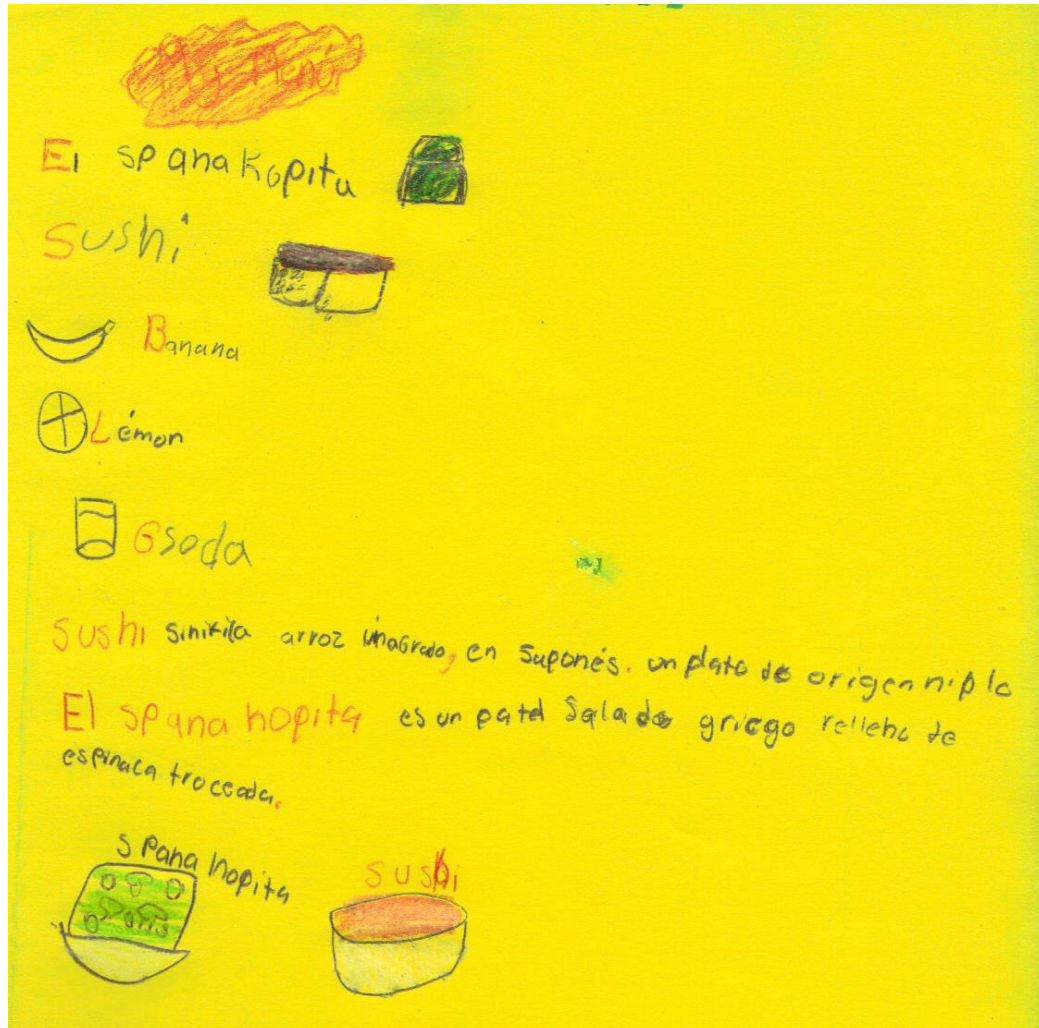 My Menú
El spanakopita
Sushi
Banana
Lémon
Gsoda
Sushi sinifica arroz vinagrado, en Japonés. un plato de origen nip lo
El spanahopita es un patel Salado griego relleho de
espinaca troceada.
spanahopita
sushi